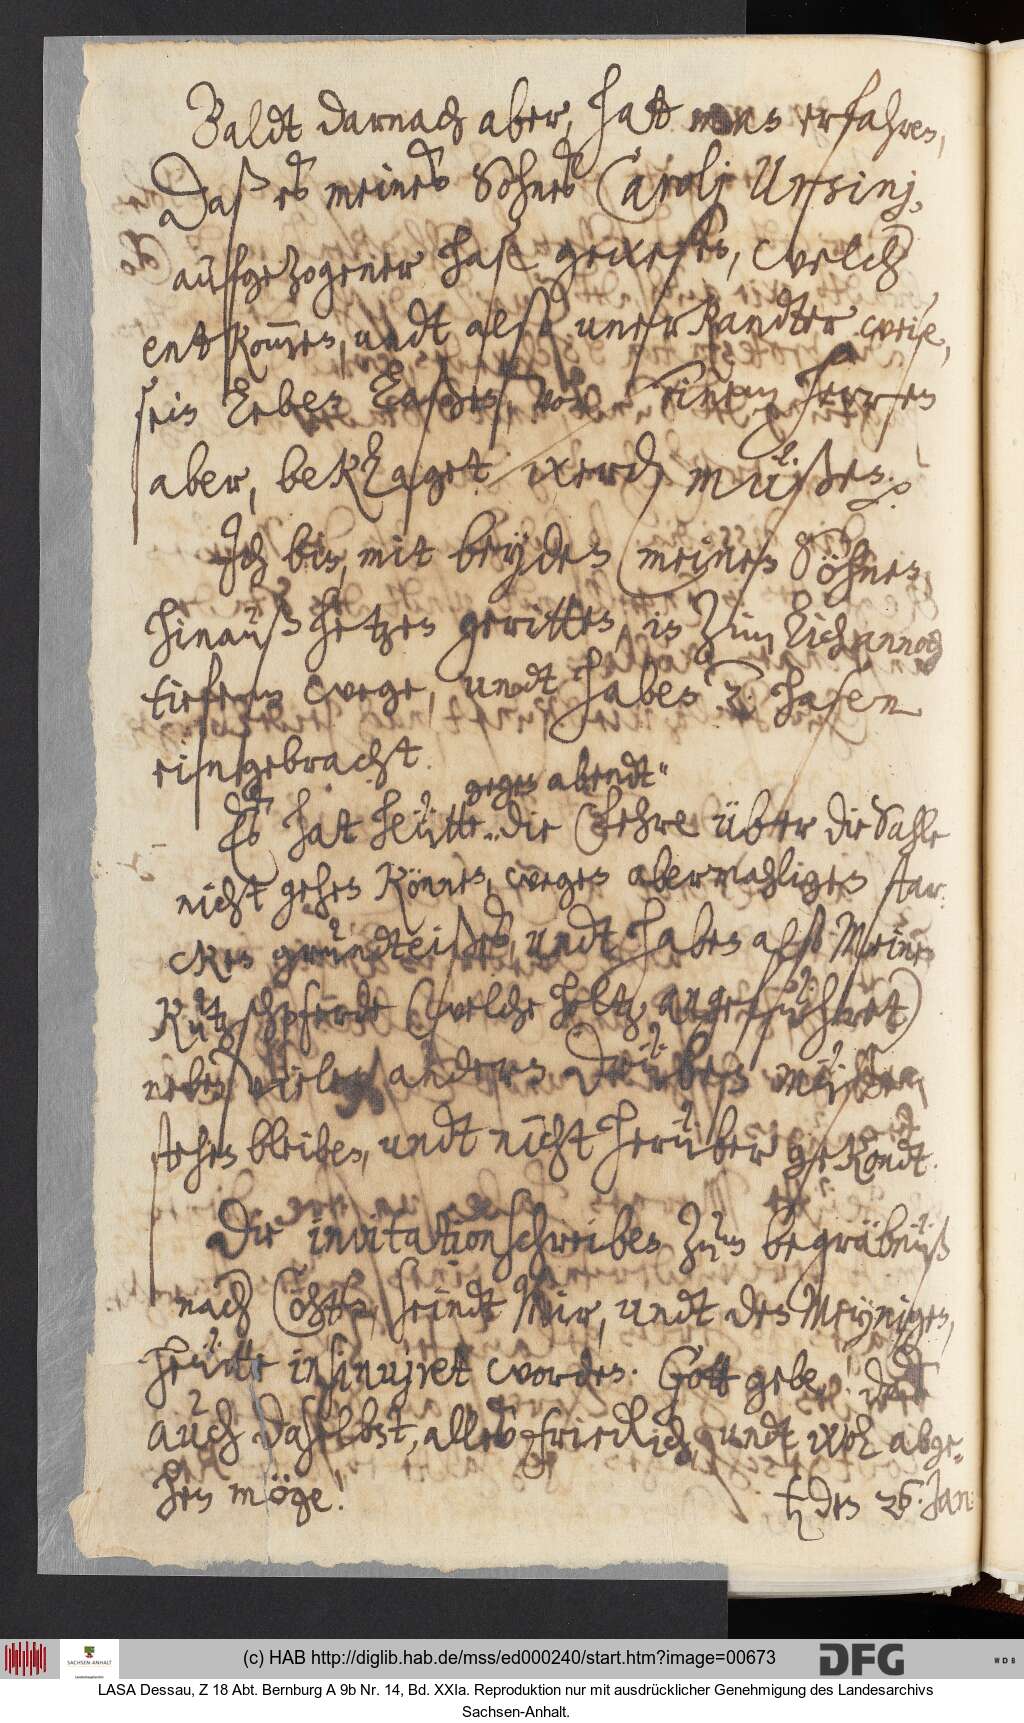 Baldt darnach aber, hatt man's erfahren,
Daß es meines Sohnes Carolj Ursinj,
aufgezogener Hase gewesen, welcher
entkommen, undt also unerkandter weise,
sein Leben laßen, von seinem Herren
aber, beklaget werden müßen.
Ich bin, mit beyden meinen Söhnen,
hinauß hetzen geritten, in zimlich annoch
tiefem wege, undt haben 2. Hasen
eingebracht.
gegen abendt
Es hat heütte die Fehre über die Sahle
nicht gehen können, wegen abermahligen star-
cken grundteißes, undt haben also Meine
Kutzschpferde (welche holtz angeführet)
neben vielen andern drüben müßen
stehen bleiben, undt nicht herüber gekondt.
Die invitationschreiben zum begräbnüß
nach Cöhten, seindt Mir, undt den Meynigen,
heütte insinujret worden. Gott gebe! daß
auch daselbst, alles friedlich, undt wol abge-
hen möge!
den 26. Jan:
(c) HAB http://diglib.hab.de/mss/ed000240/start.htm?image=00673
SACHSEN-ANHALT
DFG
WDB
LASA Dessau, Z 18 Abt. Bernburg A 9b Nr. 14, Bd. XXIa. Reproduktion nur mit ausdrücklicher Genehmigung des Landesarchivs
Sachsen-Anhalt.